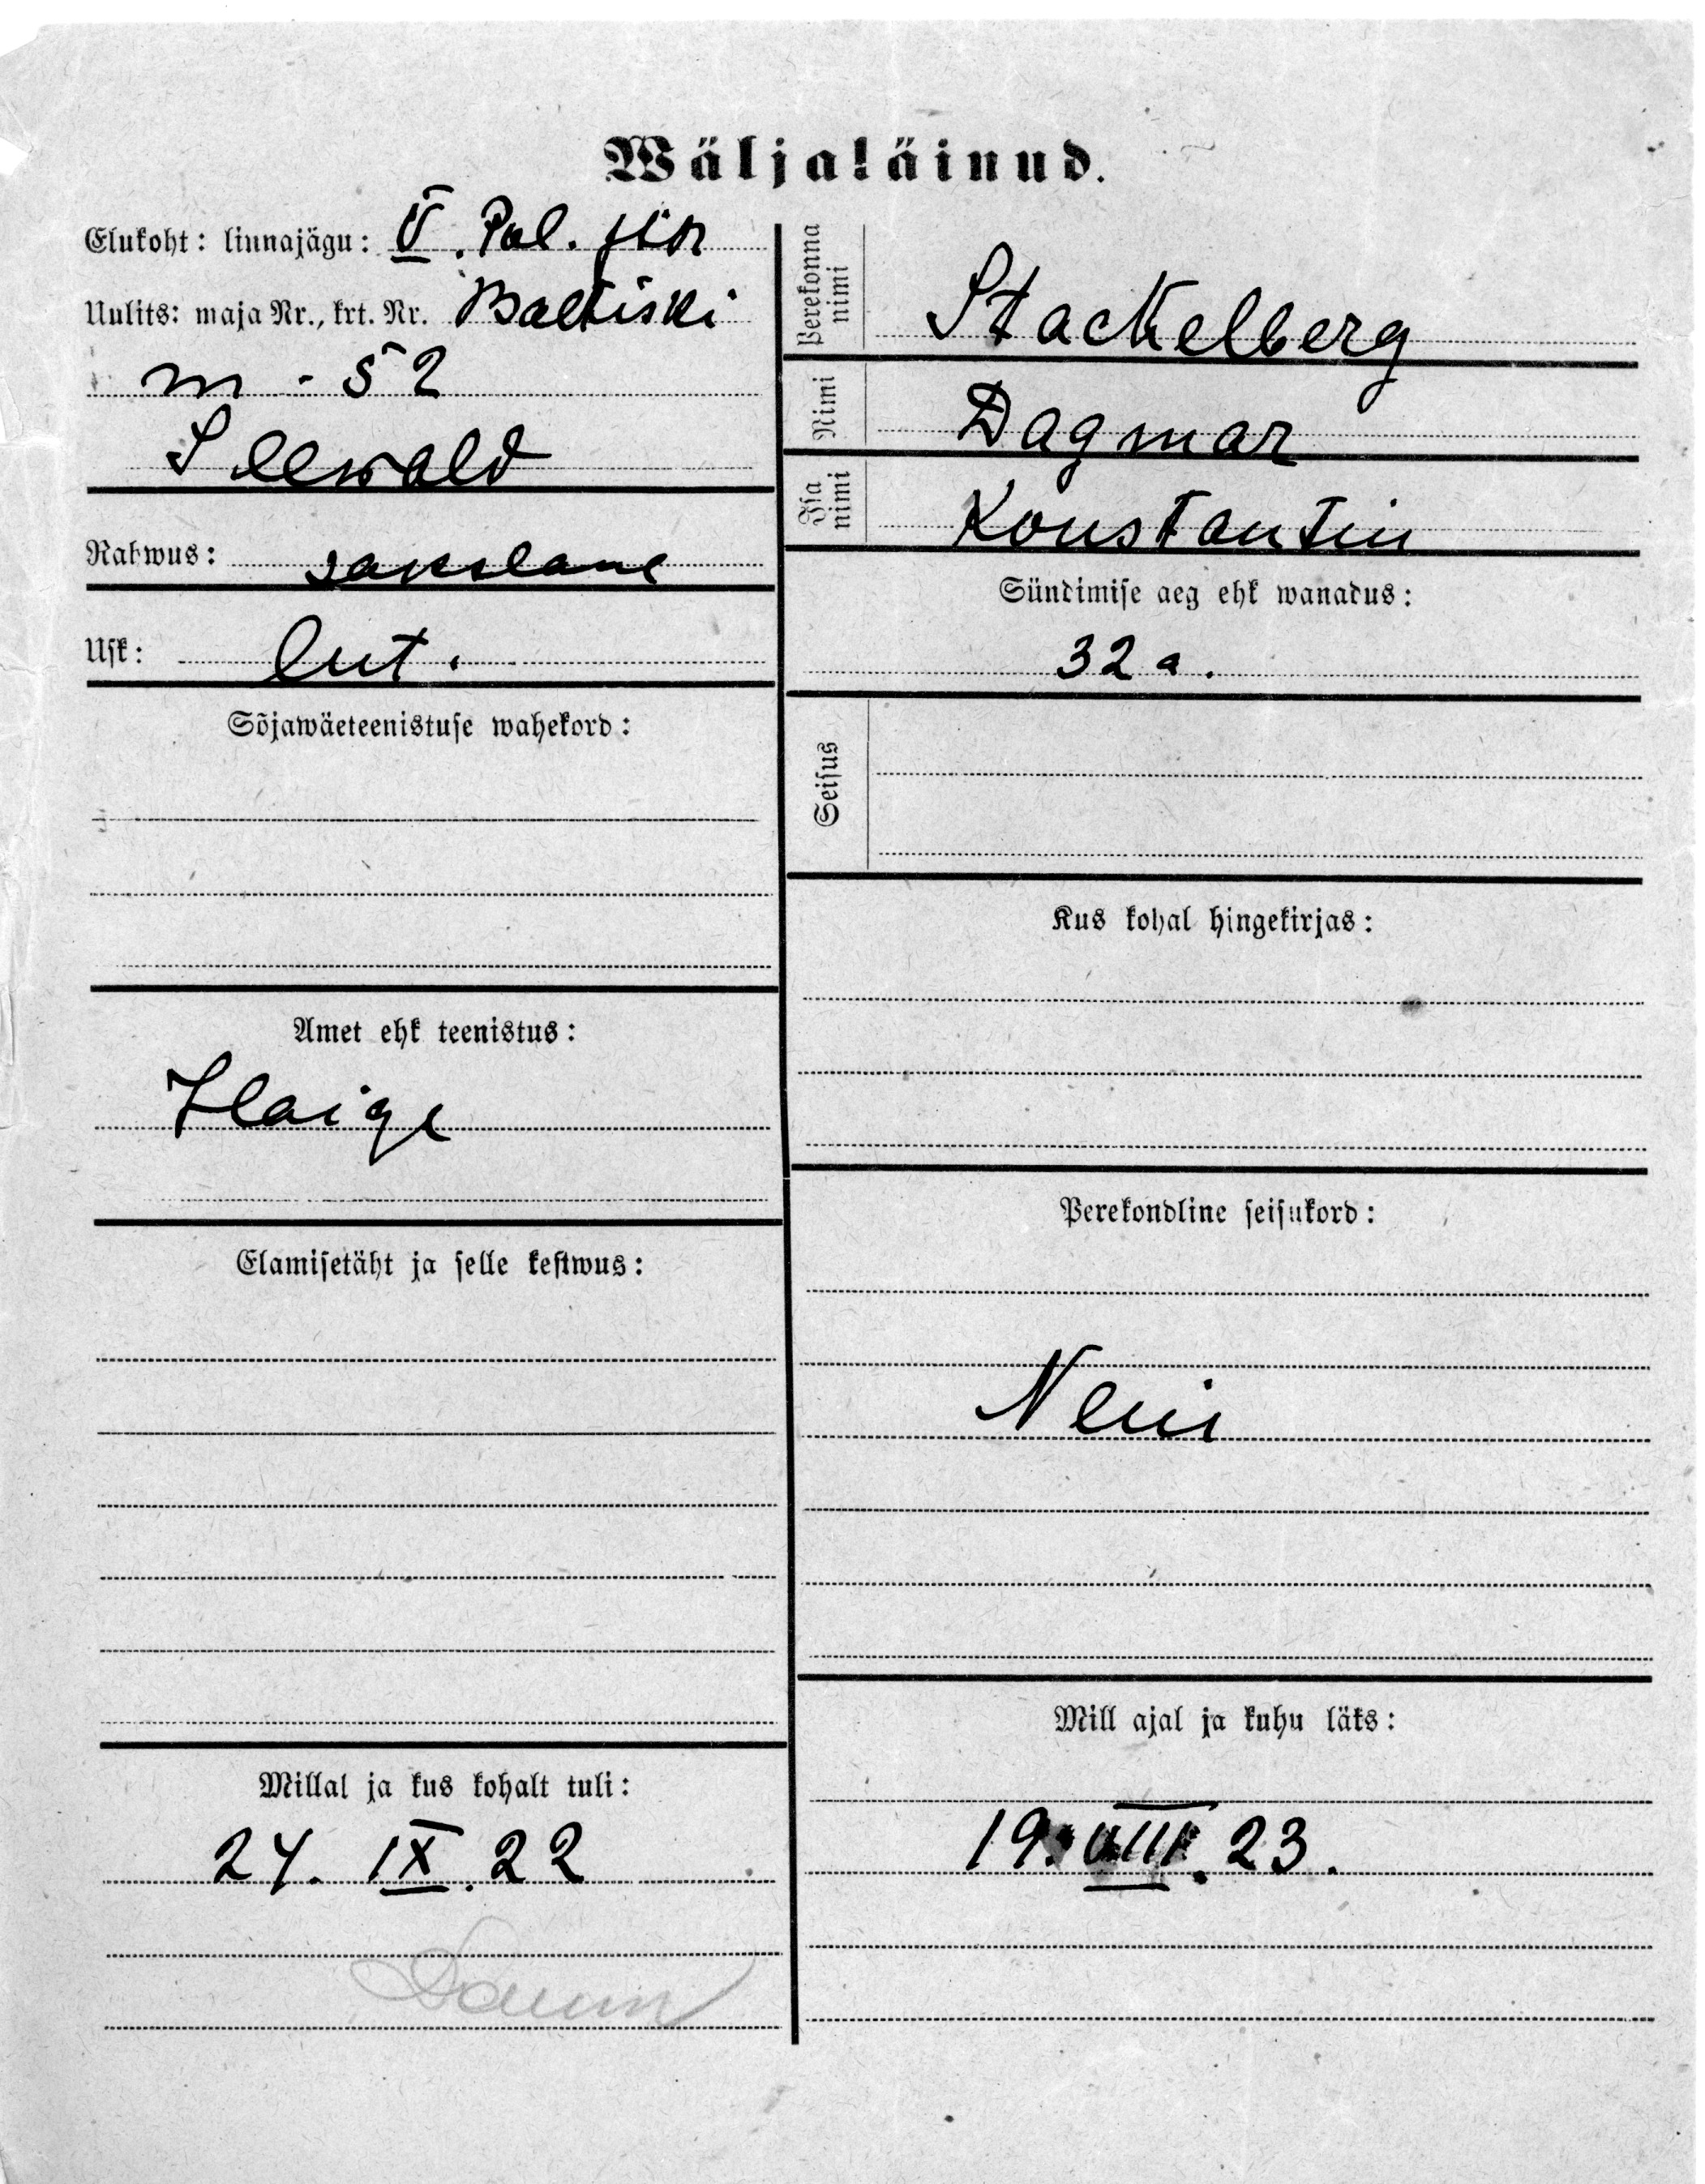 Wäljaläinud.
Elukoht: linnajägu: V. Pol. jsk
Uulits: maja Nr., krt. Nr. Baltiski
m - 52
Seewald
Rahwus: sakslane
Usk: lut.
Sõjawäeteenistuse wahekord:
Amet ehk teenistus:
Haige
Elamisetäht ja selle kestwus:
Millal ja kus kohalt tuli:
24. IX. 22
Perekonna nimi Stackelberg
Nimi Dagmar
Isa nimi Konstantin
Sündimise aeg ehk wanadus:
32 a.
Seisus
Kus kohal hingekirjas:
Perekondline seisukord:
Neiu
Mill ajal ja kuhu läks:
19. VIII. 23.